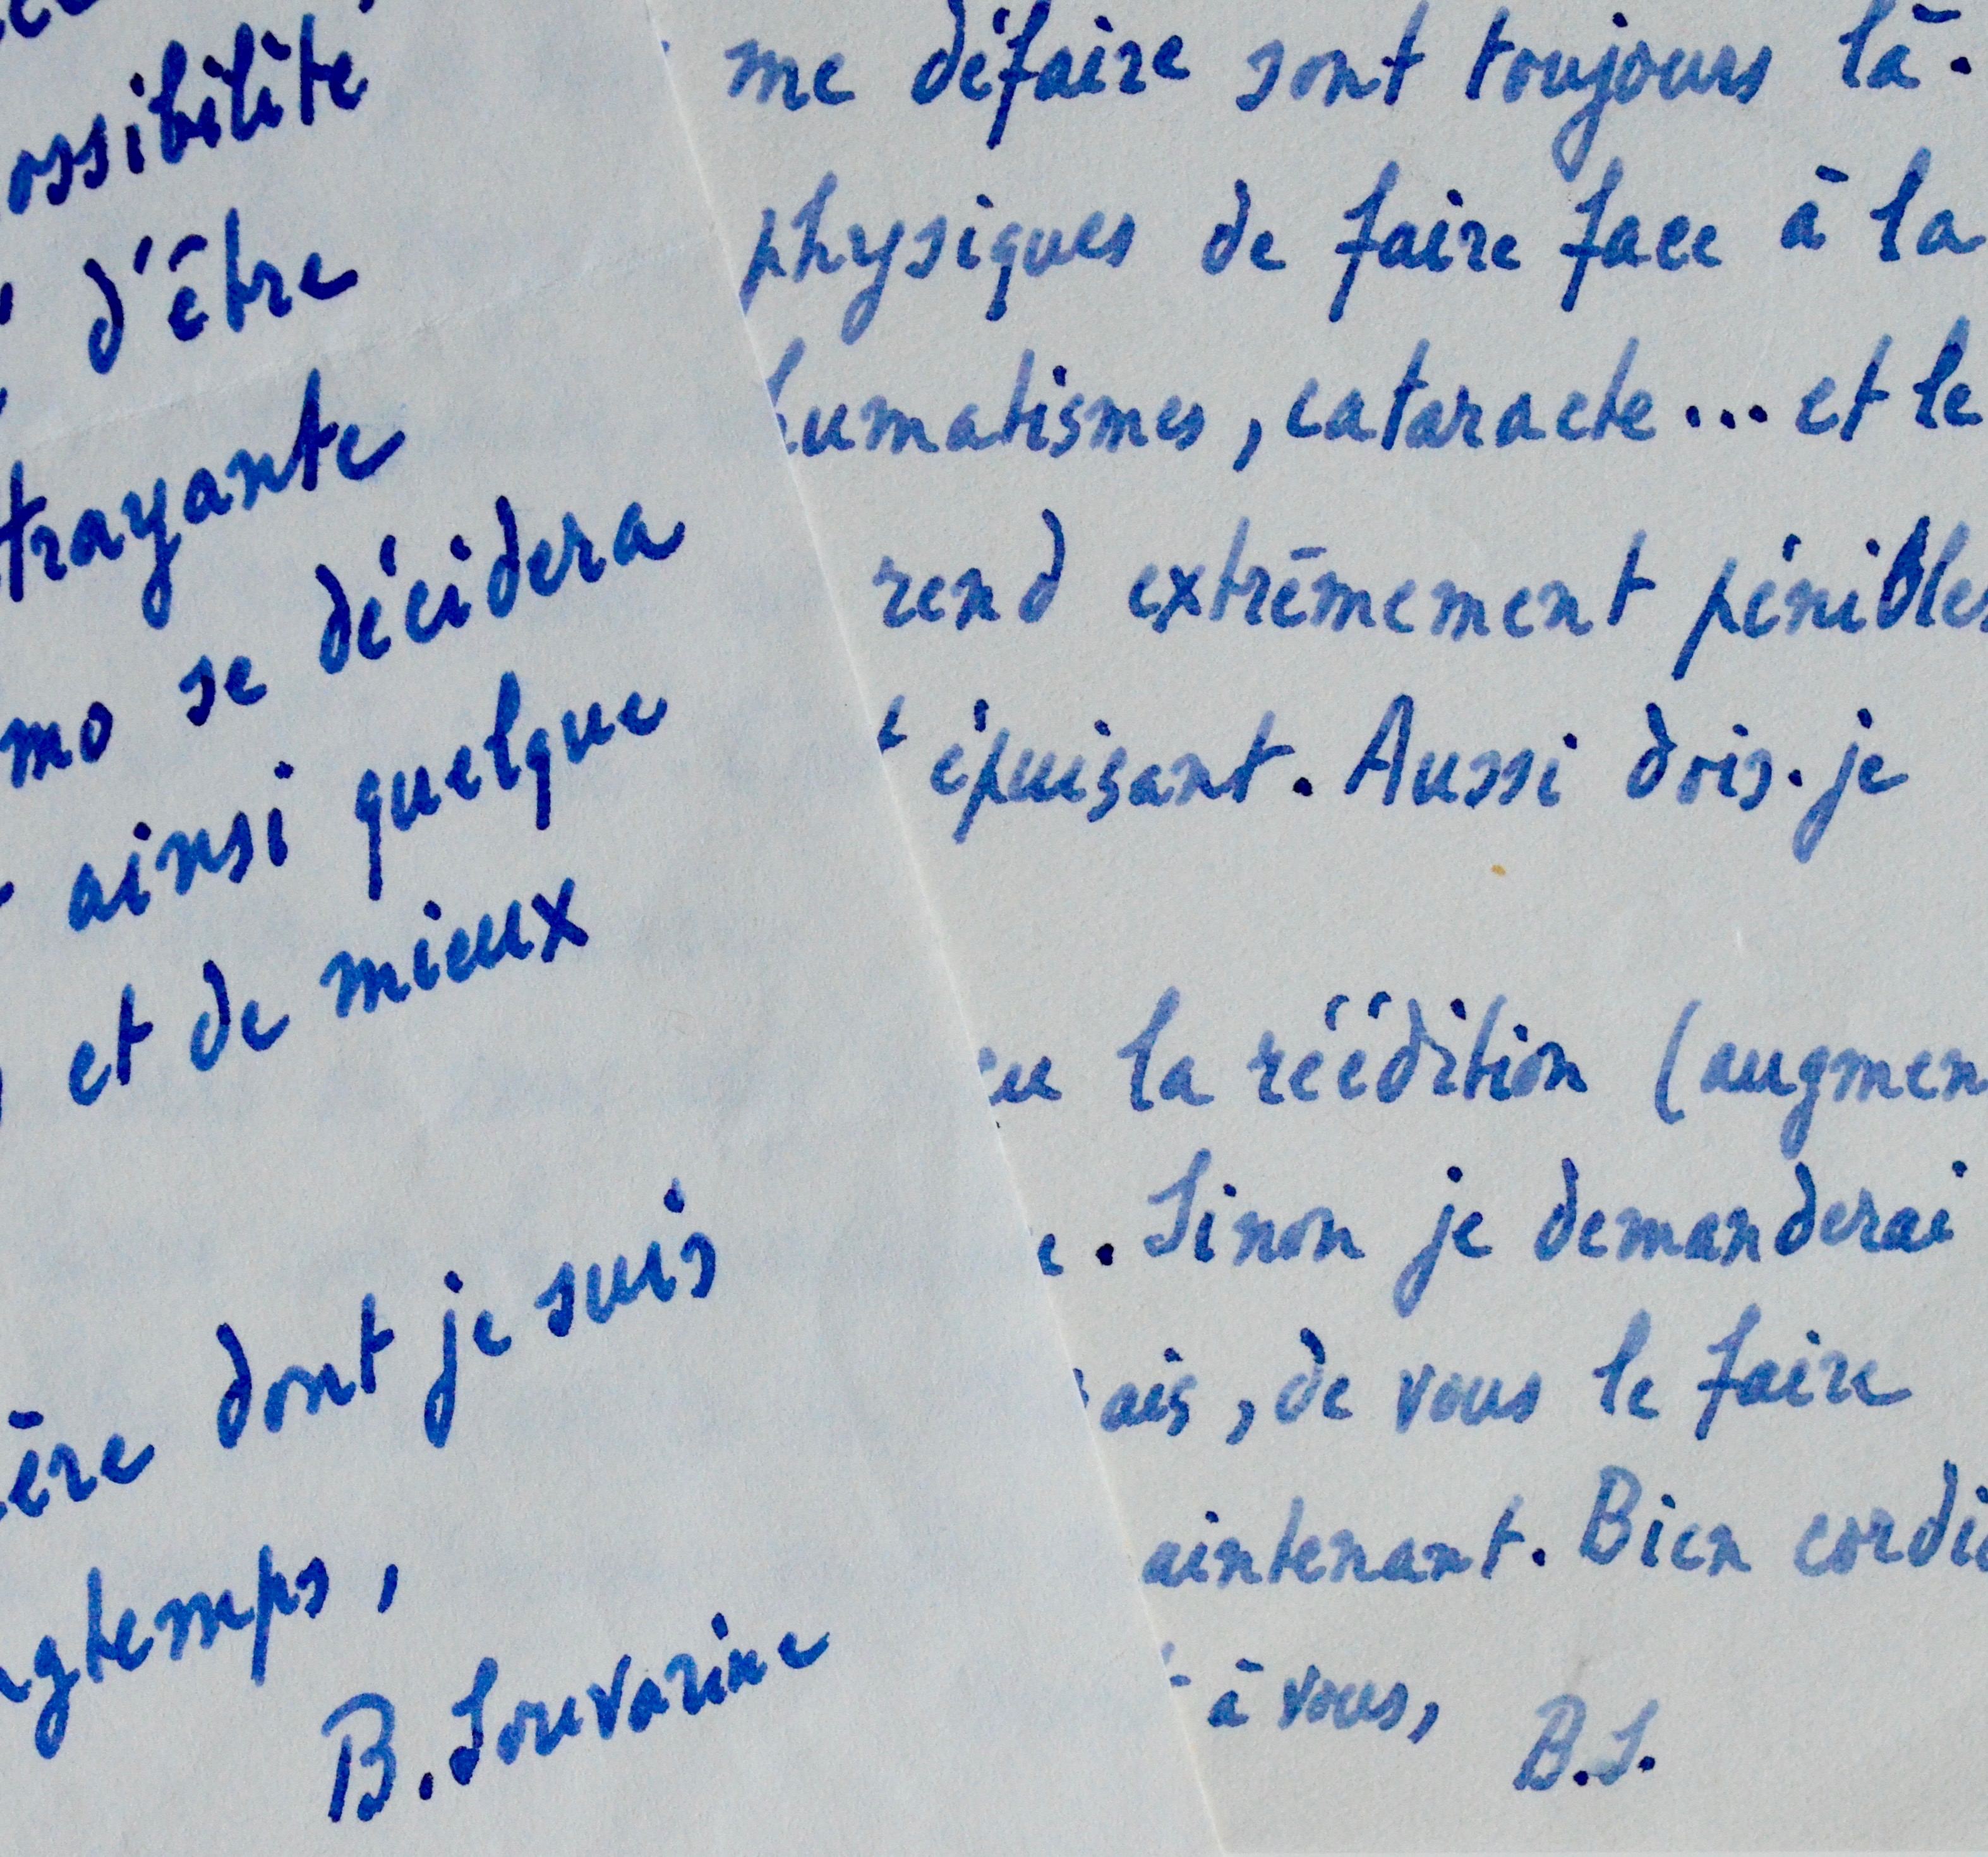 ossibilité
d'être
trayante
mo se décidera
ainsi quelque
et de mieux
ère dont je suis
ngtemps,
B. Souvarine
me défaire sont toujours là.
physiques de faire face à la
humatismes, cataracte... et le
rend extrêmement pénibles
épuisant. Aussi dois-je
la réédition (augmen
. Sinon je demanderai
ais, de vous le faire
aintenant. Bien cordi
à vous,
B.S.